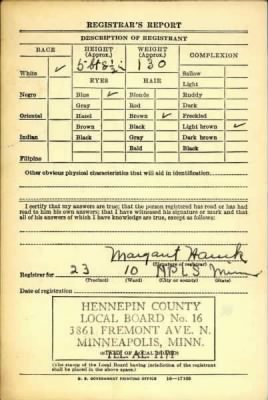 REGISTRAR'S REPORT
DESCRIPTION OF REGISTRANT
RACE HEIGHT (Approx.) WEIGHT (Approx.) COMPLEXION
White ✓ 130 Sallow
Light
EYES HAIR
Negro Blue ✓ Blonde Ruddy
Gray Red Dark
Oriental Hazel Brown ✓ Freckled
Brown Black Light brown ✓
Indian Black Gray Dark brown
Bald Black
Filipino
Other obvious physical characteristics that will aid in identification
I certify that my answers are true; that the person registered has read or has
had read to him his own answers; that I have witnessed his signature or mark and that
all of his answers of which I have knowledge are true, except as follows:
Margaret Hauck
(Signature of registrar)
Registrar for 23 10 MPLS Minn
(Precinct) (Ward) (City or county) (State)
Date of registration
HENNEPIN COUNTY
LOCAL BOARD No. 16
3861 FREMONT AVE. N.
MINNEAPOLIS, MINN.
(STAMP OF LOCAL BOARD)
(The stamp of the Local Board having jurisdiction of the registrant
shall be placed in the above space.)
U. S. GOVERNMENT PRINTING OFFICE 16—17105